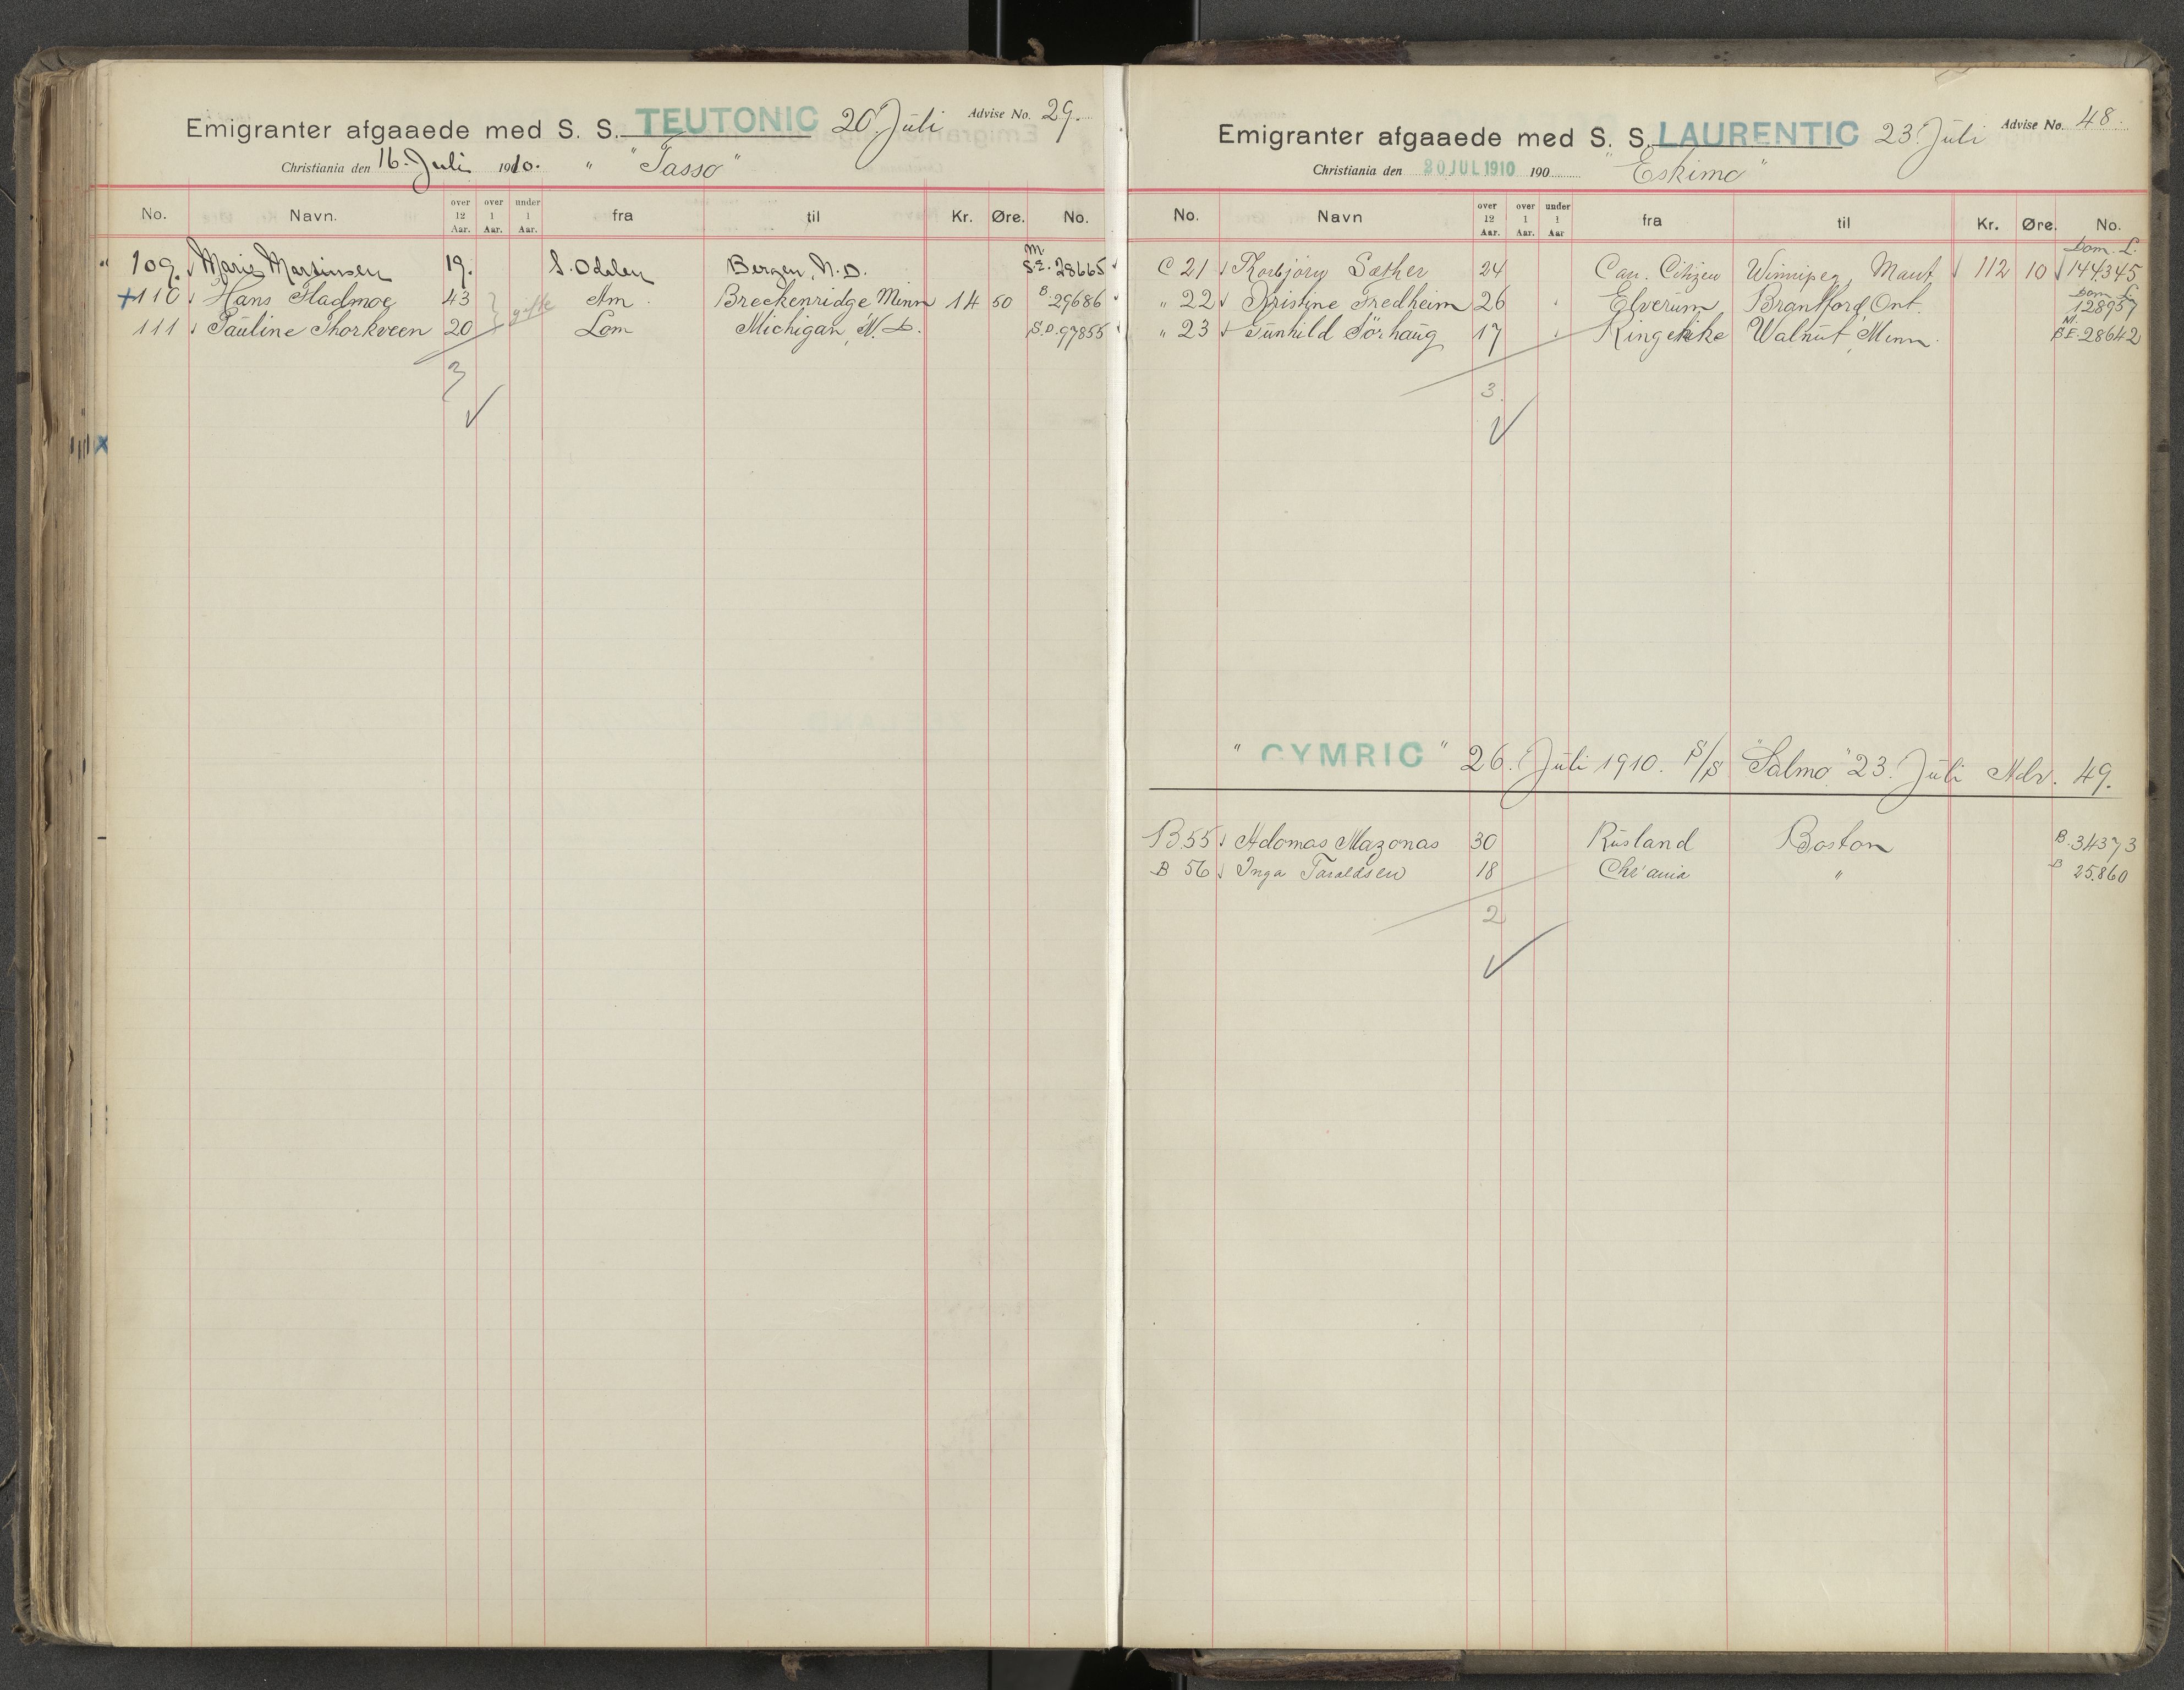 Emigranter afgaaede med S. S. TEUTONIC 20. Juli Advise No. 29.
Christiania den 16. Juli 1910. " "Tasso"
No. Navn. over 12 Aar. over 1 Aar. under 1 Aar. fra til Kr. Øre. No.
" 109. Marie Martinsen 19. S. Odalen Bergen, N. D. M. S.E. 28665
+110 Hans Hadmoe 43 gifte Am. Breckenridge Minn 14 50 B 29686
111 Pauline Thorkveen 20 Lom Michigan, N. D. S.D. 97855
3
Emigranter afgaaede med S. S. LAURENTIC 23. Juli Advise No. 48.
Christiania den 20 JUL 1910 190 "Eskimo"
No. Navn over 12 Aar. over 1 Aar. under 1 Aar fra til Kr. Øre. No.
C 21 Thorbjörn Sæther 24 Can. Citizen Winnipeg, 112 10 Dom. L. 144345
" 22 Kristine Fredheim 26 Elverum Brantford, Ont. Dom L. 128957
" 23 Gunhild Sörhaug 17 Ringerike Walnut, Minn. M. B.E. 28642
3
" CYMRIC " 26. Juli 1910. S/S "Salmo" 23. Juli Adv. 49.
B 55 Adomas Mazonas 30 Rusland Boston B. 34373
B 56 Inga Taraldsen 18 Chr'ania " B 25.860
2